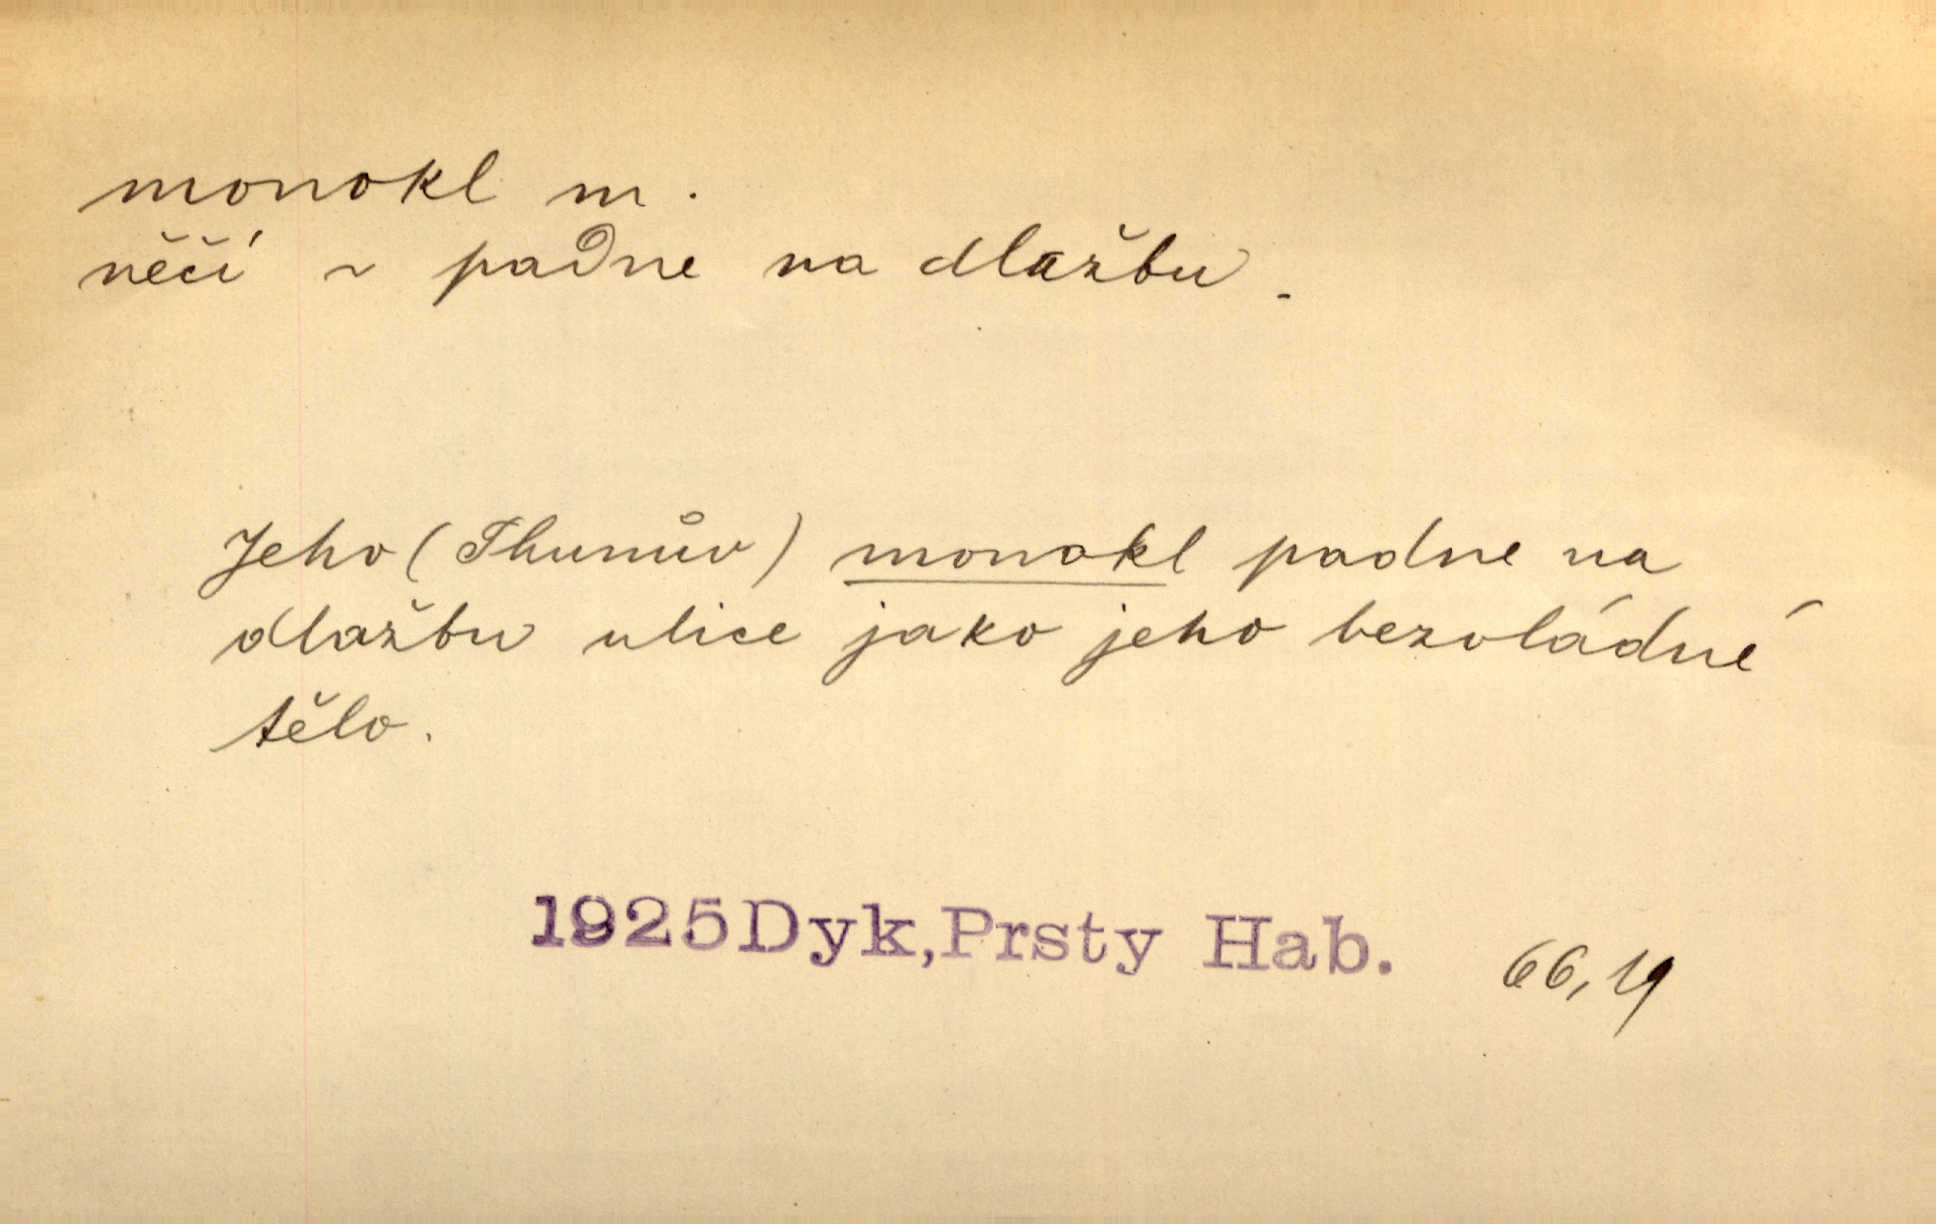 monokl m.
něčí ~ padne na dlažbu.
Jeho (Thunův) monokl padne na
dlažbu ulice jako jeho bezvládné
tělo.
1925 Dyk, Prsty Hab. 66,19